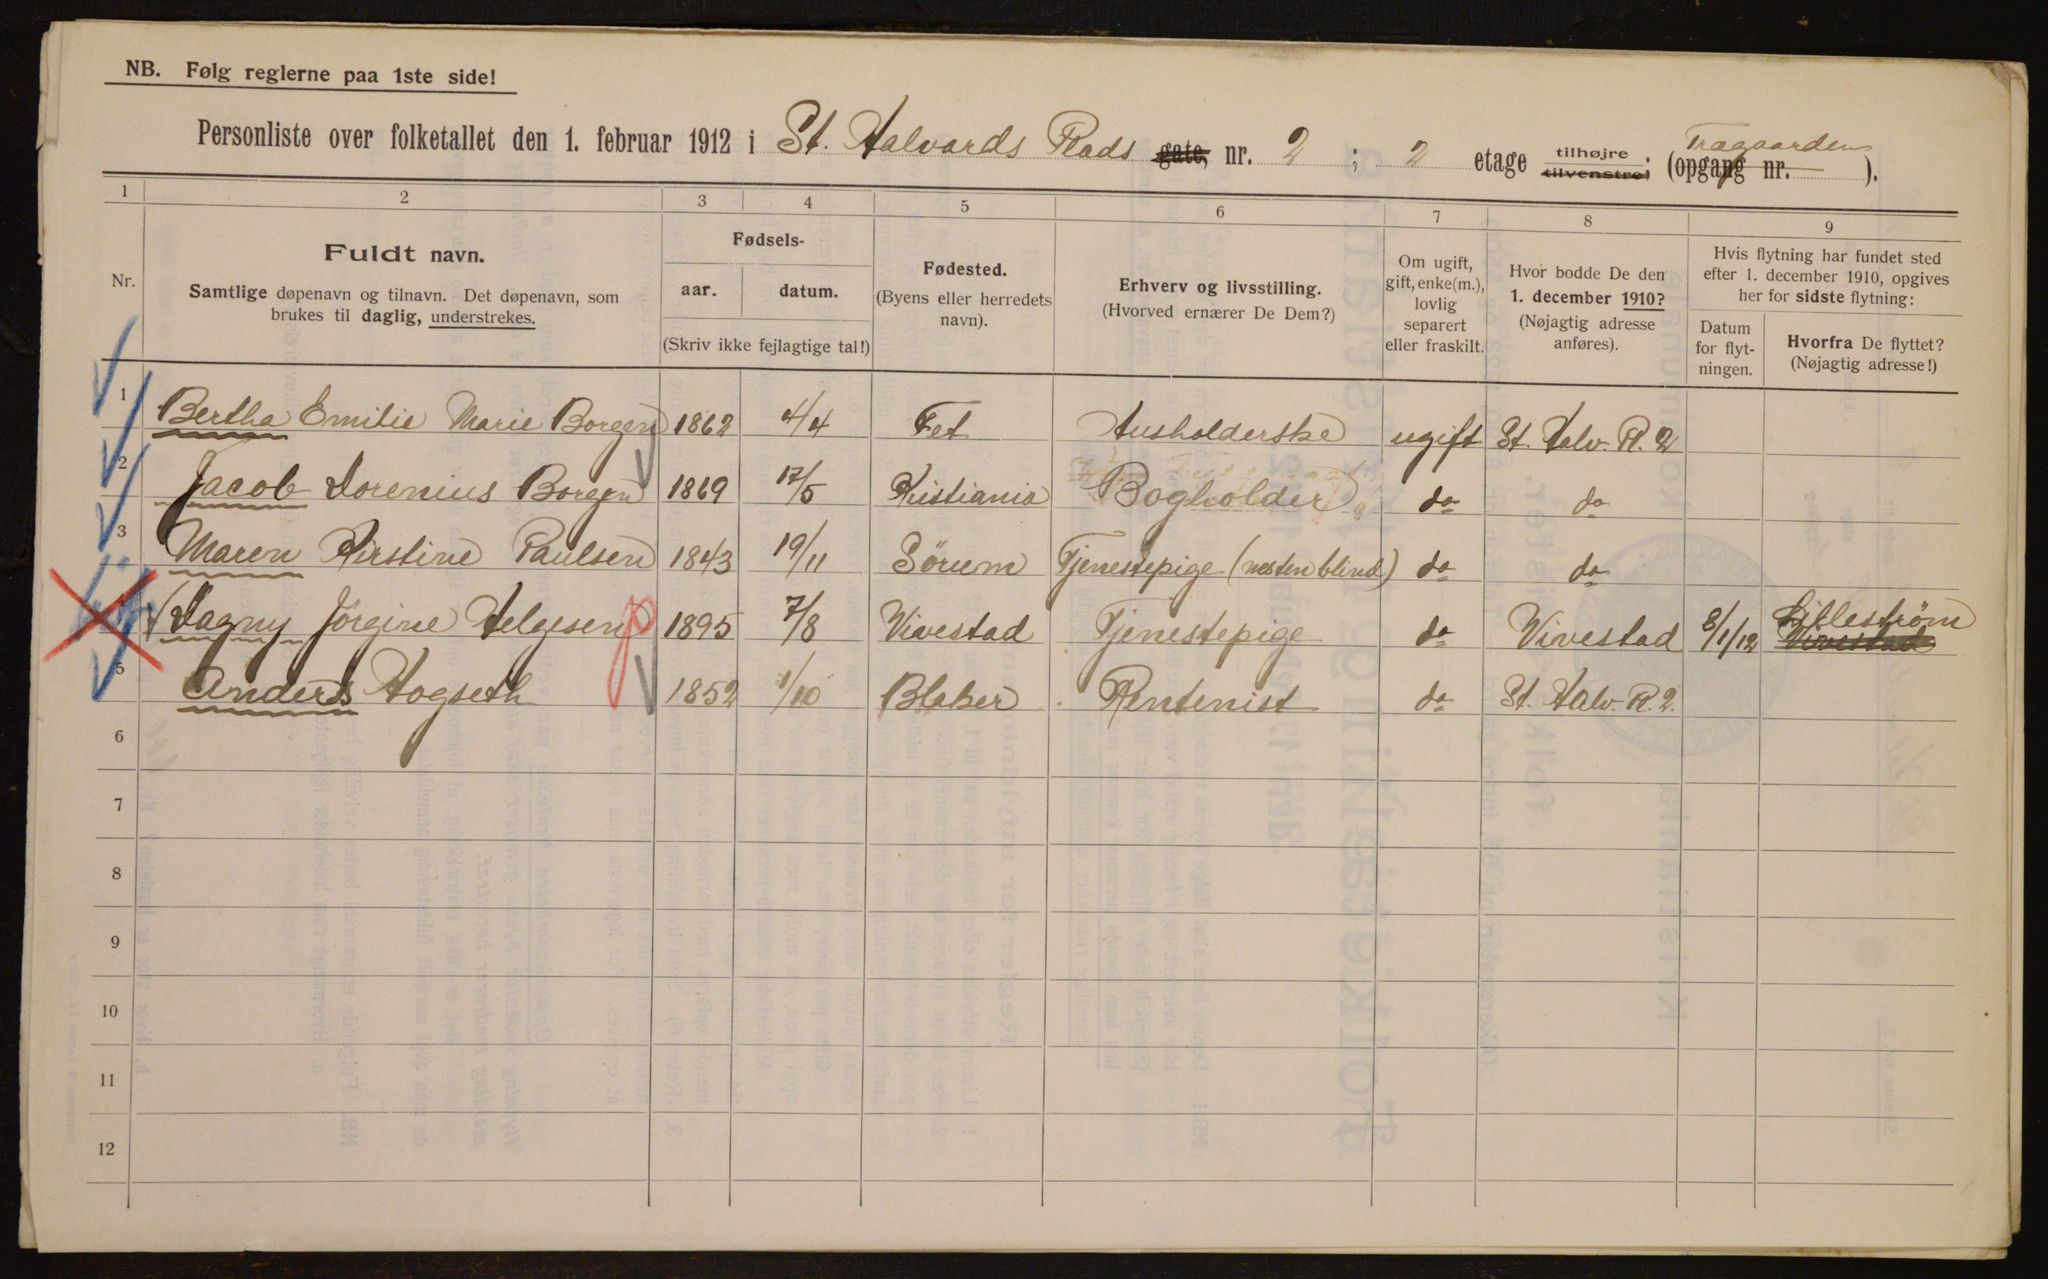 NB. Følg reglerne paa 1ste side!
Personliste over folketallet den 1. februar 1912 i St. Halvards Plads gate, nr. 2 ; 2 etage tilhøjre tilvenstre! (opgang nr. ).
Trægaarden
1 2 3 4 5 6 7 8 9
Nr.
Fuldt navn.
Samtlige døpenavn og tilnavn. Det døpenavn, som
brukes til daglig, understrekes.
Fødsels-
aar. datum.
(Skriv ikke fejlagtige tal!)
Fødested.
(Byens eller herredets
navn).
Erhverv og livsstilling.
(Hvorved ernærer De Dem?)
Om ugift,
gift, enke(m.),
lovlig
separert
eller fraskilt.
Hvor bodde De den
1. december 1910?
(Nøjagtig adresse
anføres).
Hvis flytning har fundet sted
efter 1. december 1910, opgives
her for sidste flytning:
Datum
for flyt-
ningen.
Hvorfra De flyttet?
(Nøjagtig adresse!)
1 Bertha Emilie Marie Borgen 1862 4/4 Fet Husholderske ugift St. Halv. Pl. 2
2 Jacob Lorenius Borgen 1869 17/5 Kristiania Bogholder do do
3 Maren Kirstine Paulsen 1843 19/11 Sørum Tjenestepige (næsten blind) do do
4 (Dagny Jörgine Helgesen 1895 7/8 Vivestad Tjenestepige do Vivestad 8/1/12 Lillestrøm Vivestad
5 Anders Hogseth 1852 1/10 Blaker Rentenist do St. Halv. Pl. 2.
6
7
8
9
10
11
12